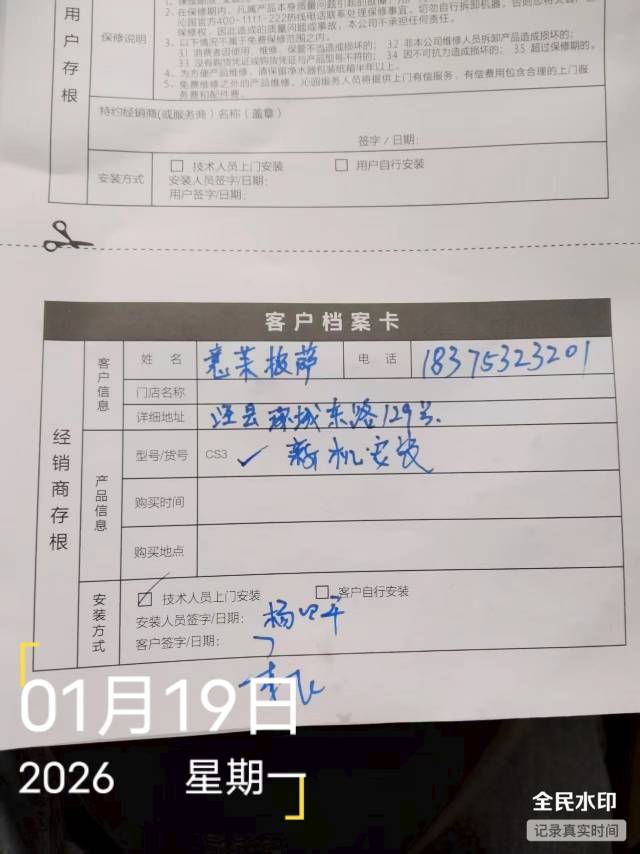 用户存根
保修说明
2、在保修期内，凡属产品本身质量问题引起的故障，
沁园官方400-1111-222热线电话联系处理保修事宜。切勿自行拆卸机器，否则
保修权，因此造成的质量问题或事故，本公司不承担任何责任。
3、以下情况不属于免费保修范围之内。
3.1 消费者因使用、维修、保管不当造成损坏的； 3.2 非本公司维修人员拆卸产品造成损坏的；
3.3 没有购货凭证或购货凭证与产品型号不符的； 3.4 因不可抗力造成损坏的； 3.5 超过保修期的。
4、为方便产品维修，请保留净水器包装纸箱半年以上。
5、免费维修之外的产品维修，沁园服务人员将提供上门有偿服务，有偿费用包含合理的上门服
务费和配件费。
特约经销商(或服务商)名称(盖章)
签字/日期:
安装方式
技术人员上门安装 用户自行安装
安装人员签字/日期:
用户签字/日期:
客户档案卡
经销商存根
客户信息
姓 名 披萨 电 话 18375323201
门店名称
详细地址 环城东路129号
产品信息
型号/货号 CS3 ✓ 新机安装
购买时间
购买地点
安装方式
技术人员上门安装 客户自行安装
安装人员签字/日期: 杨
客户签字/日期:
01月19日
2026 星期一
全民水印
记录真实时间